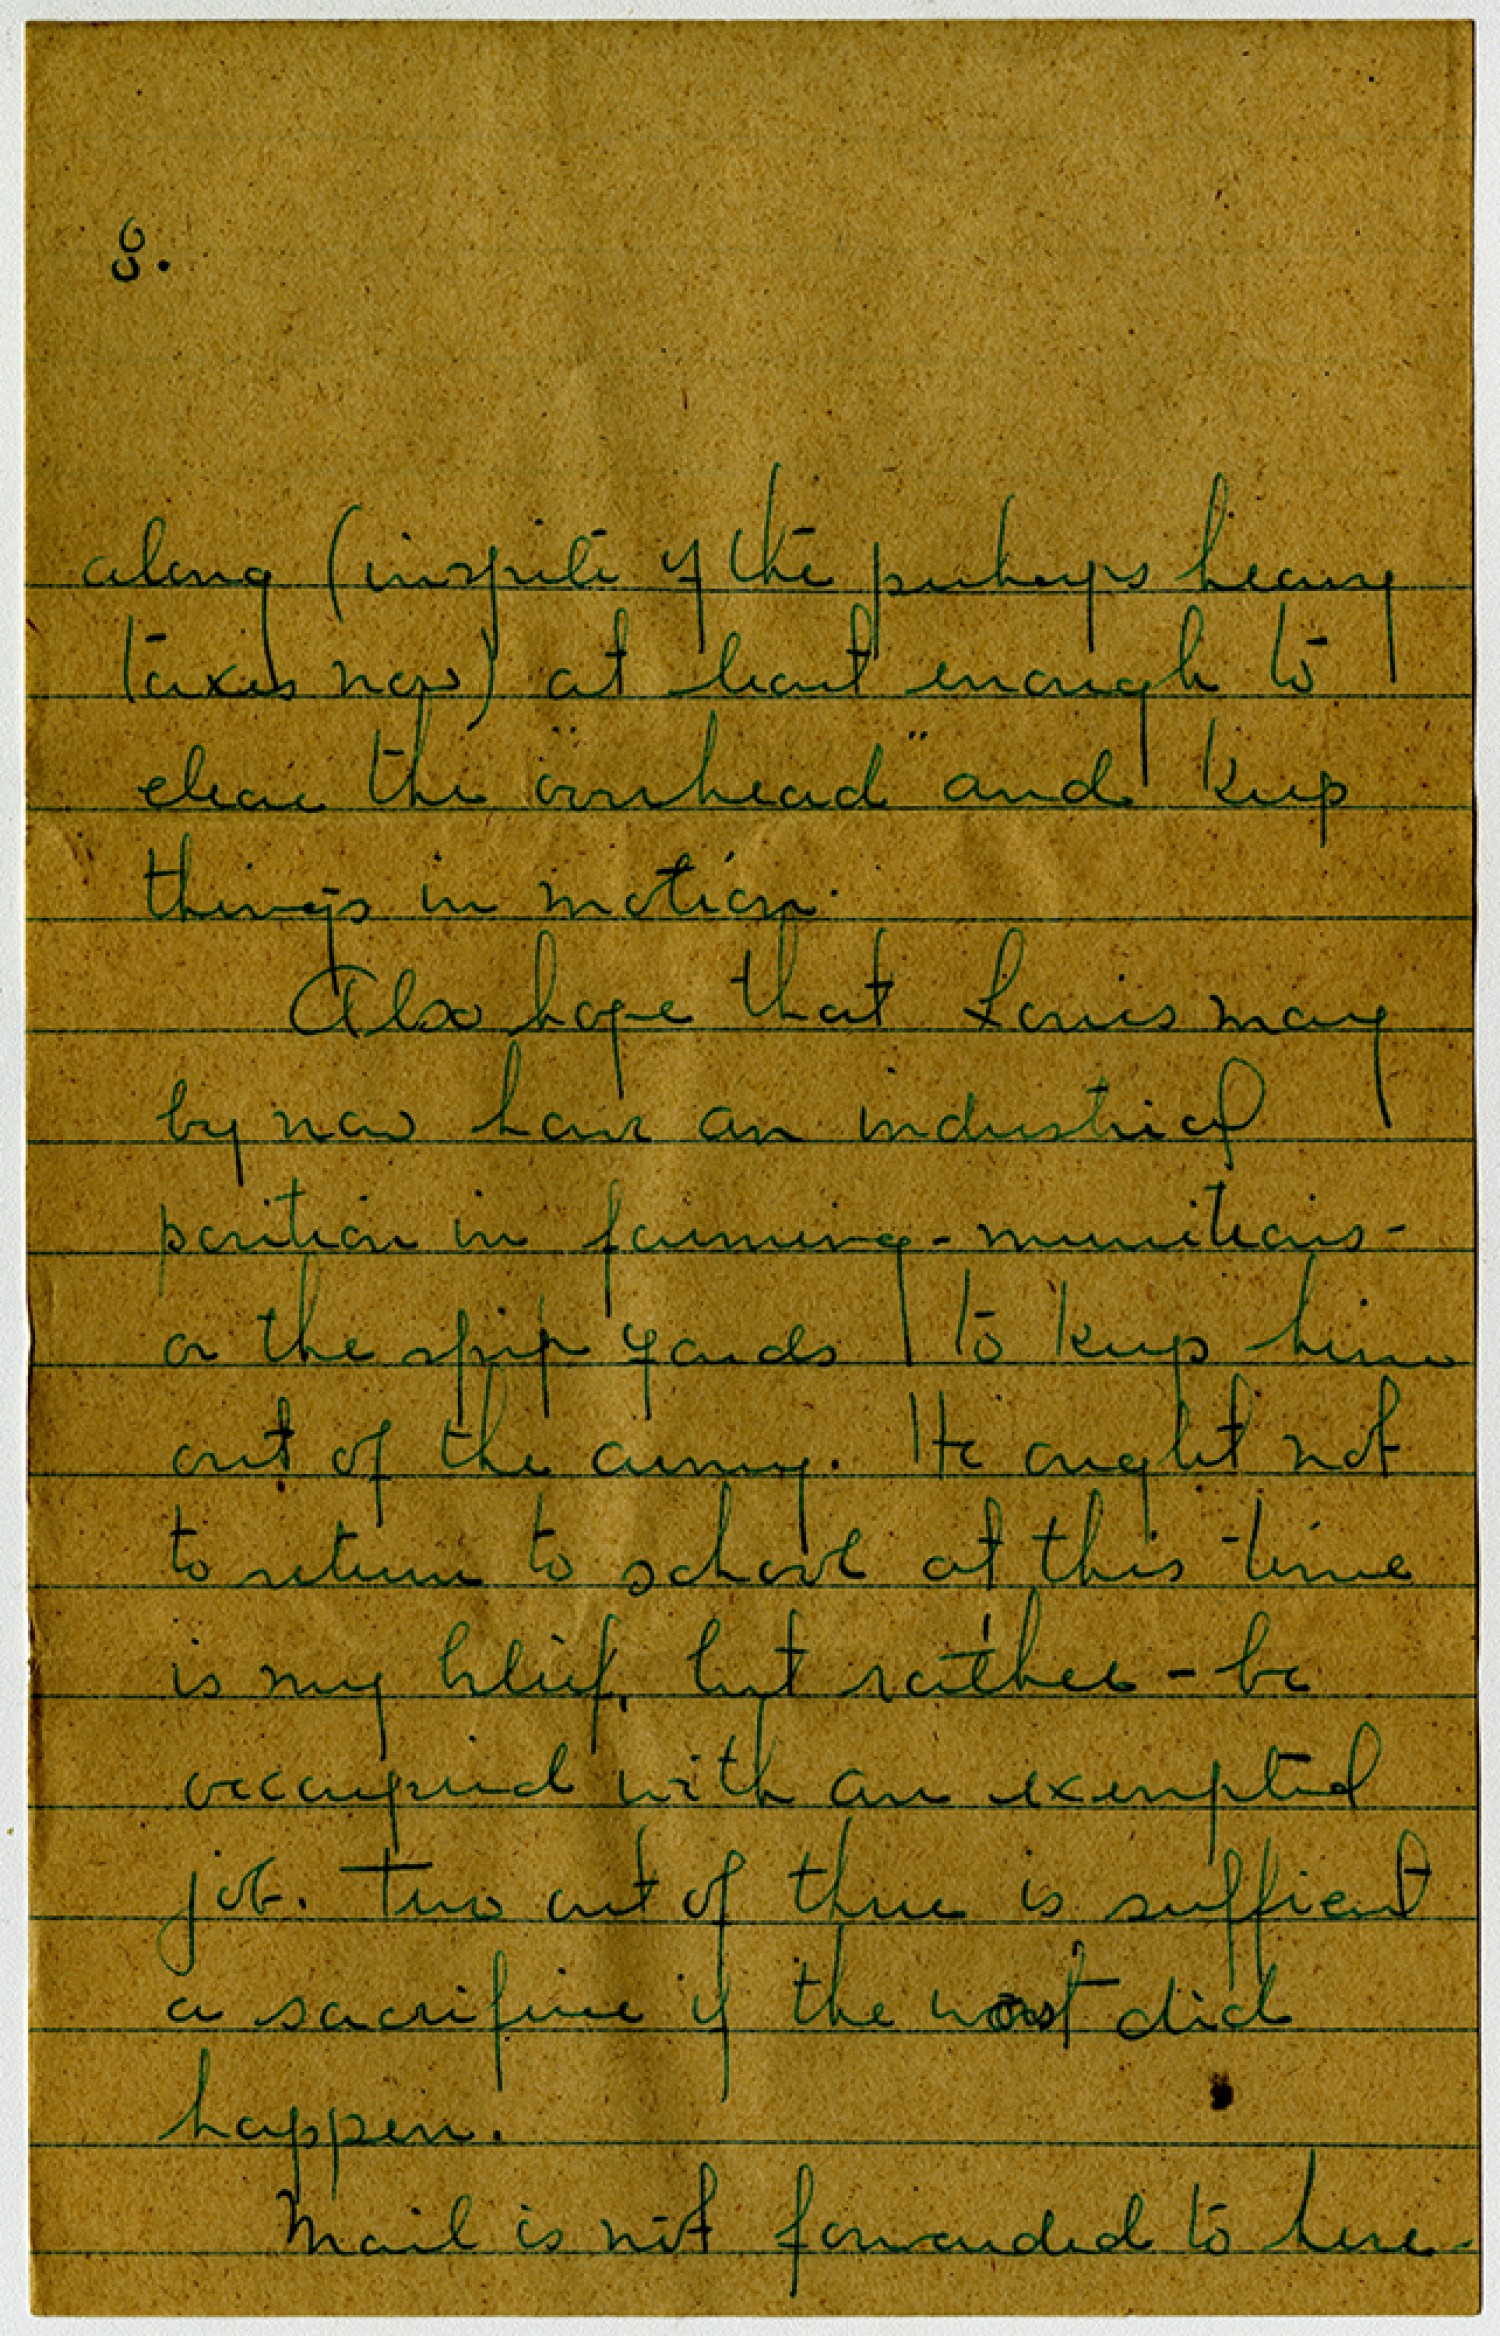 8.
along (inspite of the perhaps heavy
taxes now) at least enough to
clear the "overhead" and keep
things in motion.
Also hope that Louis may
by now have an industrial
position in farming - munitions -
or the ship yards to keep him
out of the army. He ought not
to return to school at this time
is my belief, but rather - be
occupied with an exempted
job. Two out of three is sufficient
a sacrifice if the worst did
happen.
Mail is not forwarded to here -